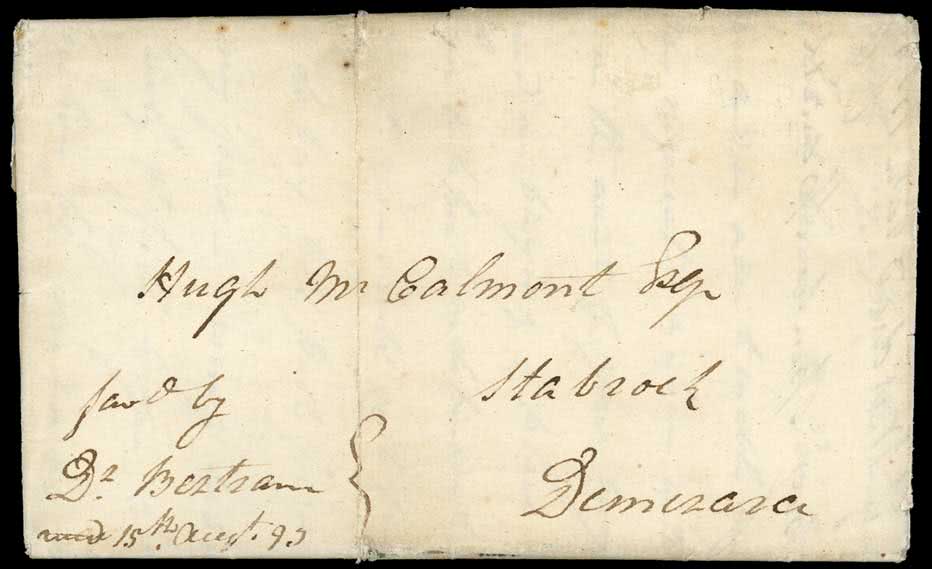 Hugh Mc Calmont Esqr
Stabroek
Demerara
favd by
Dr Bertram
15th Augt. 93